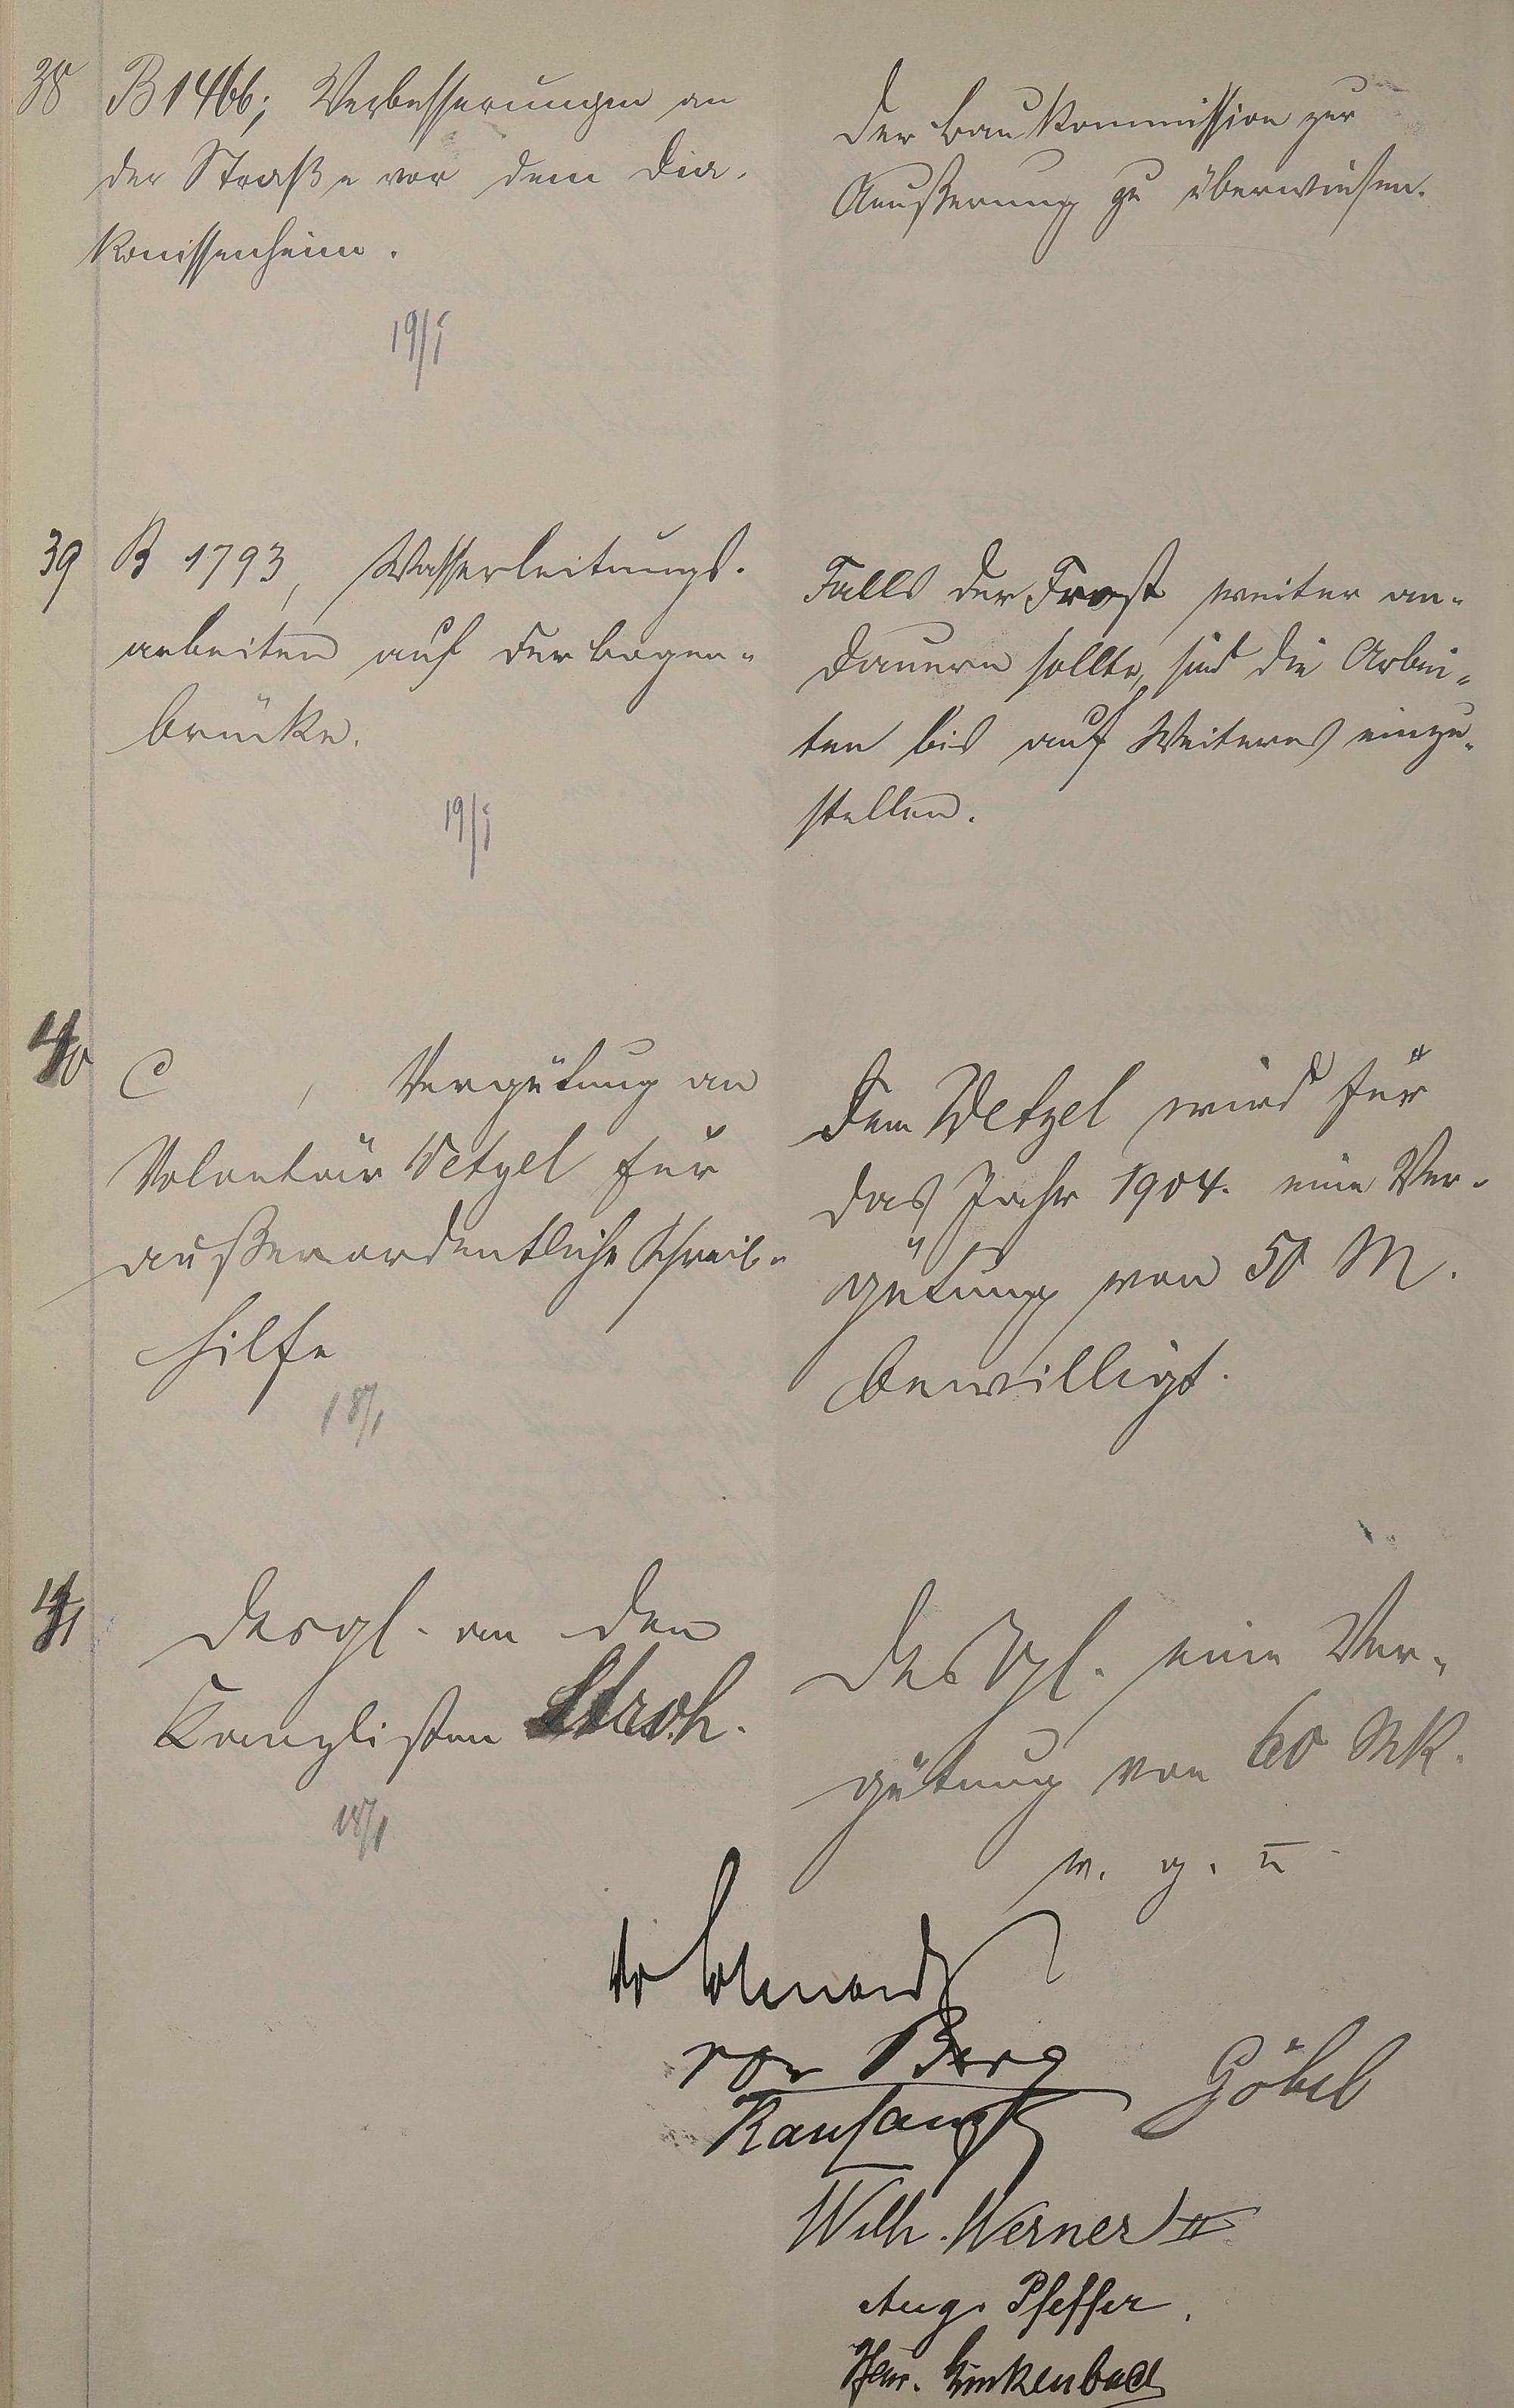 38
B 1466; Verbesserungen an
der Straße vor dem Dia-
konissenheim.
19/I
Der Baukommission zur
Aeußerung zu überweisen.
39
B 1793, Wasserleitungs-
arbeiten auf der Bogen-
brücke.
19/I
Falls der Frost weiter an-
dauern sollte, sind die Arbei-
ten bis auf Weiteres einzu-
stellen.
40
C , Vergütung an
Volontär Wetzel für
außerordentliche Schreib-
hilfe
18/1
Dem Wetzel wird für
das Jahr 1904. eine Ver-
gütung von 50 M.
bewilligt.
41
Desgl. an den
Kanzlisten Stroh.
18/1
Desgl. eine Ver-
gütung von 60 Mk.
w. g. u
von Berg
Göbel
Wilh. Werner II
Aug. Pfeffer.